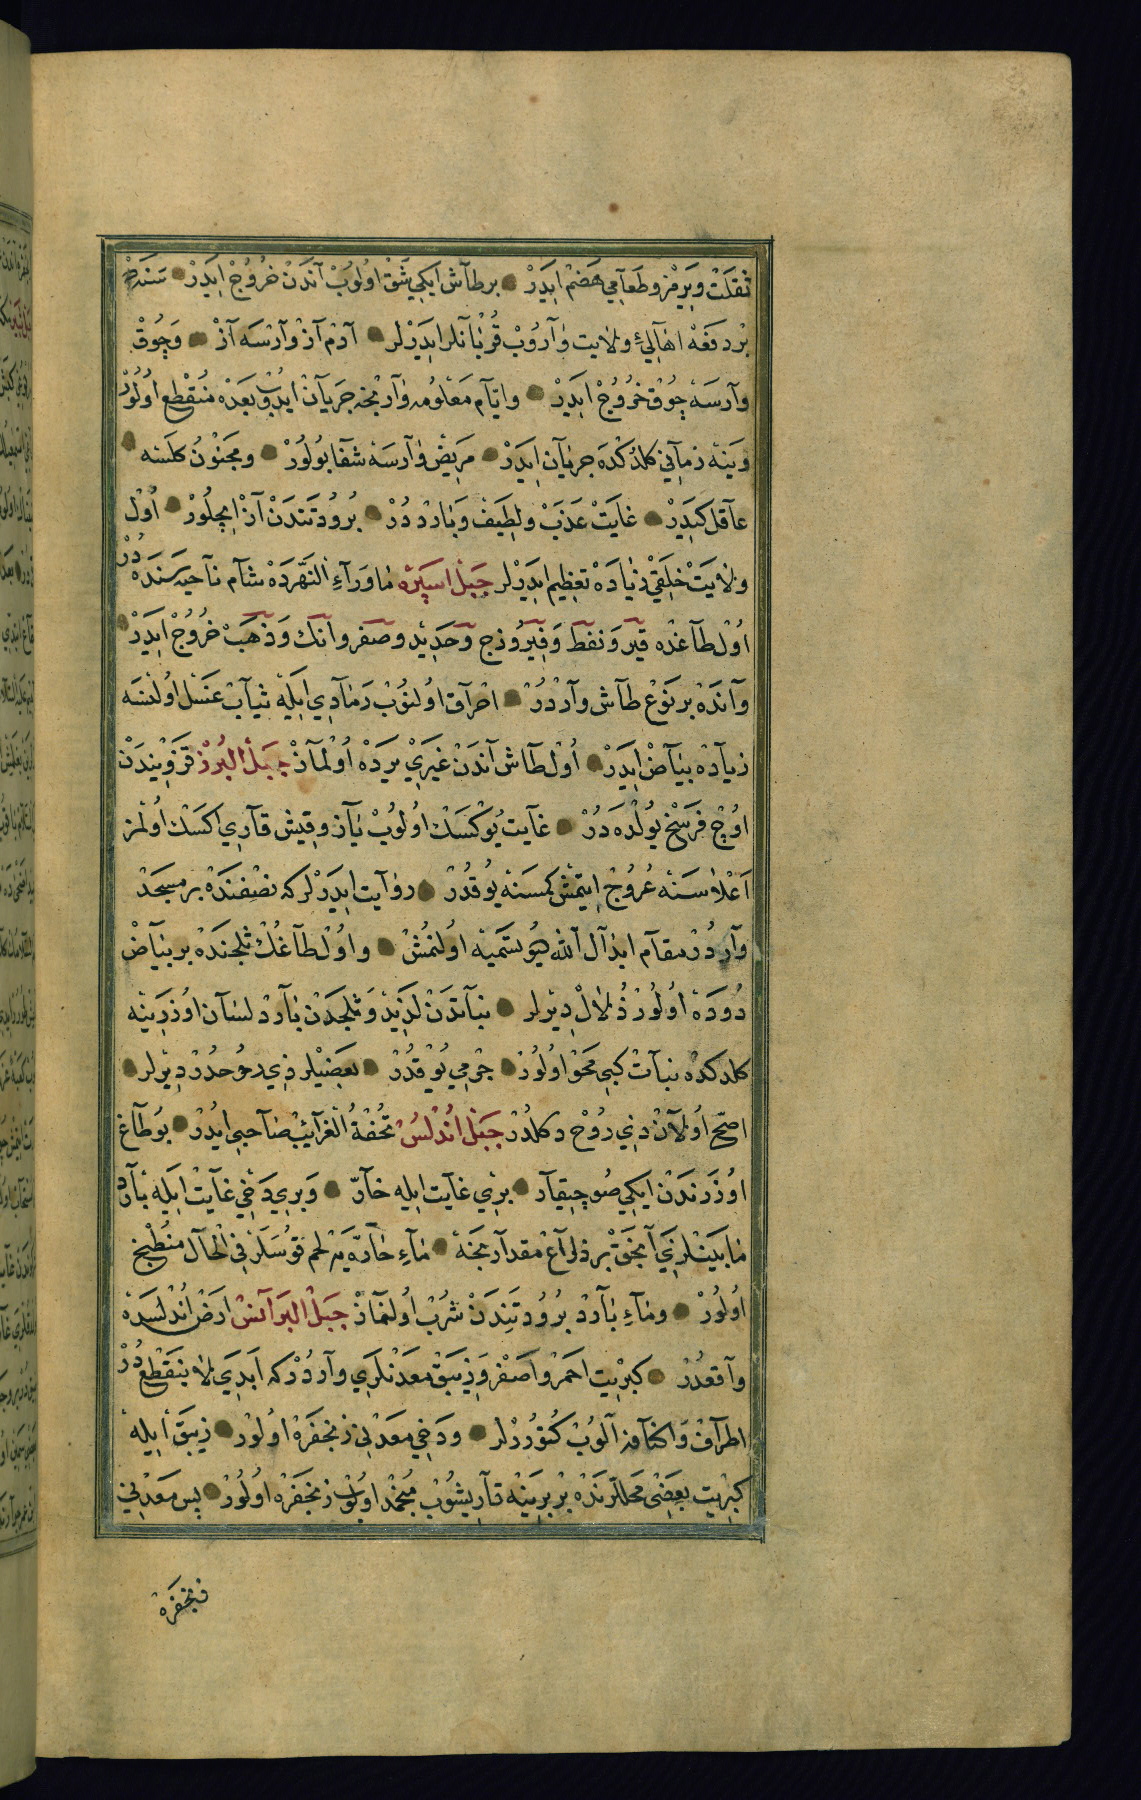 ثقلت ویرمز و طعامی هضم ایدر برطاش ایکی شق اولوب آندن خروج ایدر سنده
بر دفعه اهالئ ولایت واروب قربانلر ایدرلر آدم آز وارسه آز و چوق
وارسه چوق خروج ایدر و ایام معلومه وارنجه جریان ایدوب بعده منقطع اولور
وینه زمانی کلدکده جریان ایدر مریض وارسه شفا بولور و مجنون کلسه
عاقل کیدر غایت عذب ولطیف وبارد در برودتندن آز ایچلور اول
ولایت خلقی زیاده تعظیم ایدرلر جبل اسپره ماوراء النهرده شام ناحیه سنده در
اول طاغده قیر ونفط وفیروزج وحدید وصفر وآنك وذهب خروج ایدر
وآنده بر نوع طاش واردر احراق اولنوب رمادی ایله ثیاب غسل اولنسه
زیاده بیاض ایدر اول طاش آندن غیری یرده اولماز جبل البرز قزویندن
اوچ فرسخ یولده در غایت یوکسك اولوب یاز وقیش قاری اکسك اولمز
اعلاسنه عروج ایتمش کمسنه یوقدر روایت ایدرلر که نصفنده بر مسجد
واردر مقام ابدال الله دیو تسمیه اولنمش و اول طاغك ثلجنده بر بیاض
دوده اولور زلال دیرلر نباتدن لذیذ و ثلجدن بارد لسان اوزرینه
کلدکده نبات کبی محو اولور جرمی یوقدر بعضیلر ذی روحدر دیرلر
اصح اولان ذی روح دکلدر جبل اندلس تحفة الغرایب صاحبی ایدر بو طاغ
اوزرندن ایکی صو چیقار بری غایت ایله حار وبری دخی غایت ایله بارد
مابینلری آنجق بر ذراع مقدارنجه ماء حاره یه لحم قوسه لر فی الحال منطبخ
اولور وماء بارد برودتندن شرب اولنماز جبل البرانس ارض اندلسده
واقعدر کبریت احمر واصفر وزیبق معدنلری واردر که ابدی لا ینقطع در
اطراف واکنافه آلوب کتوررلر ودخی معدنی زنجفره اولور زیبق ایله
کبریت بعضی محللرنده بربرینه قاریشوب منجمد اولوب زنجفره اولور پس معدنی
زنجفره